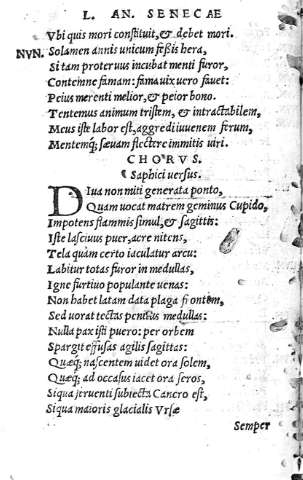 L. AN. SENECAE
Vbi quis mori constituit, & debet mori.
NVN. Solamen annis unicum feßis hera,
Si tam proteruus incubat menti furor,
Contemne famam: fama uix uero fauet:
Peius merenti melior, & peior bono.
Tentemus animum tristem, & intractabilem,
Meus iste labor est, aggredi iuuenem ferum,
Mentemq; sæuam flectere immitis uiri.
CHORVS.
Saphici uersus.
DIua non miti generata ponto,
Quam uocat matrem geminus Cupido,
Impotens flammis simul, & sagittis:
Iste lasciuus puer, acre nitens,
Tela quàm certo iaculatur arcu:
Labitur totas furor in medullas,
Igne furtiuo populante uenas:
Non habet latam data plaga frontem,
Sed uorat tectas penitus medullas:
Nulla pax isti puero: per orbem
Spargit effusas agilis sagittas:
Quæq; nascentem uidet ora solem,
Quæq; ad occasus iacet ora seros,
Siqua feruenti subiecta Cancro est,
Siqua maioris glacialis Vrsæ
Semper